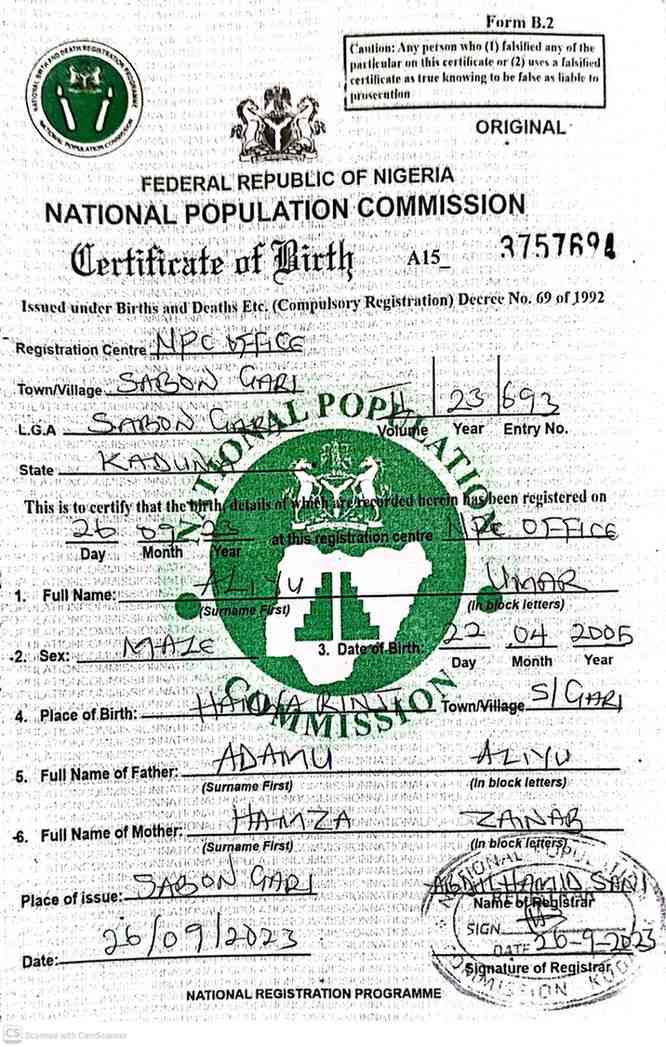 Form B.2
Caution: Any person who (1) falsified any of the
particular on this certificate or (2) uses a falsified
certificate as true knowing to be false as liable to
prosecution
NATIONAL BIRTH AND DEATH REGISTRATION PROGRAMME
NATIONAL POPULATION COMMISSION
ORIGINAL
FEDERAL REPUBLIC OF NIGERIA
NATIONAL POPULATION COMMISSION
Certificate of Birth A15_ 3757694
Issued under Births and Deaths Etc. (Compulsory Registration) Decree No. 69 of 1992
Registration Centre NPC OFFICE
Town/Village SABON GARI
L.G.A SABON GARI
23 693
Volume Year Entry No.
State KADUNA
NATIONAL POPULATION COMMISSION
This is to certify that the birth, details of which are recorded herein has been registered on
26 09 23 at this registration centre NPC OFFICE
Day Month Year
1. Full Name: ALIYU UMAR
(Surname First) (In block letters)
2. Sex: MALE 3. Date of Birth: 22 04 2005
Day Month Year
4. Place of Birth: Town/Village S/GARI
5. Full Name of Father: ADAMU ALIYU
(Surname First) (In block letters)
6. Full Name of Mother: HAMZA ZAINAB
(Surname First) (In block letters)
Place of issue: SABON GARI
ABDULHAMID SANI
Name of Registrar
SIGN
DATE 26-9-2023
Date: 26/09/2023
Signature of Registrar
NATIONAL REGISTRATION PROGRAMME
CS Scanned with CamScanner